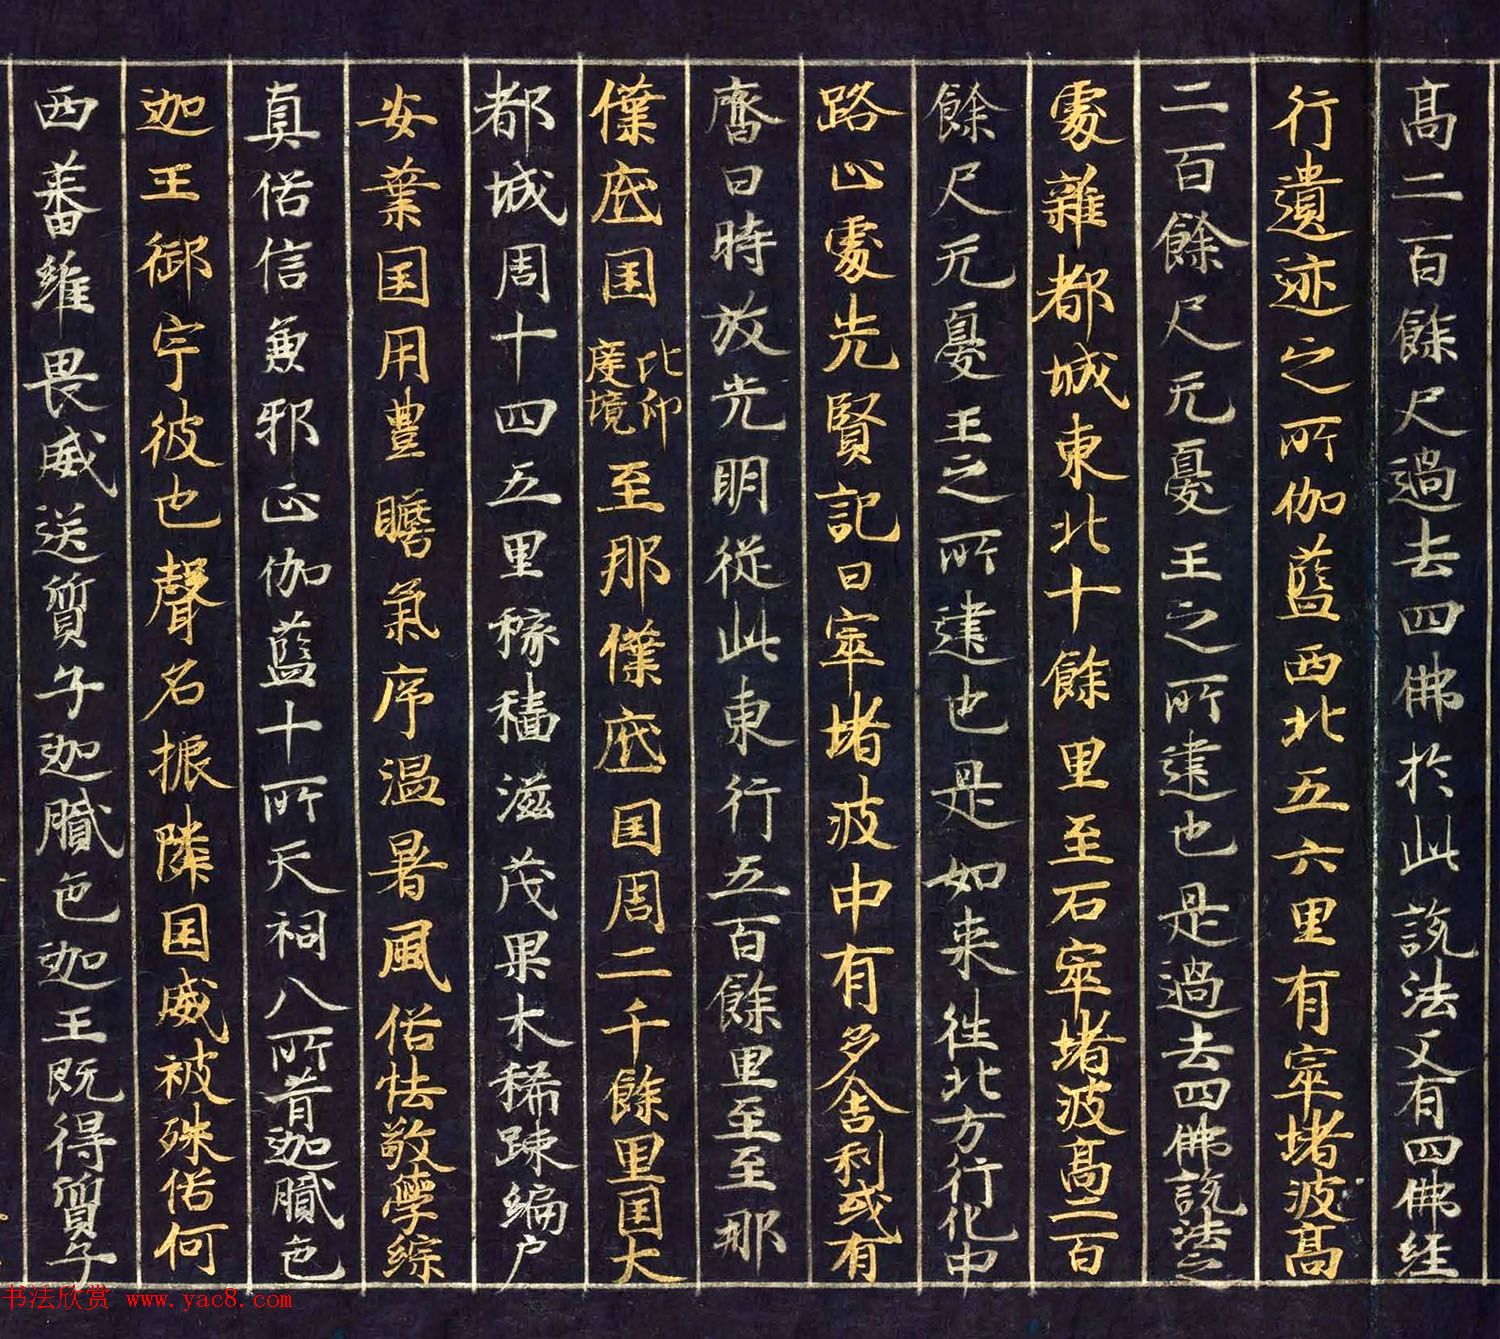 高二百餘尺過去四佛於此說法又有四佛經
行遺迹之所伽藍西北五六里有窣堵波高
二百餘尺无憂王之所建也是過去四佛說法之
處雜都城東北十餘里至石窣堵波高二百
餘尺无憂王之所建也是如来往北方行化中
路止處先賢記曰窣堵波中有多舍利或有
齋日時放光明從此東行五百餘里至至那
僕底囯北印度境至那僕底囯周二千餘里囯大
都城周十四五里稼穡滋茂果木稀踈編户
安業囯用豊贍氣序温暑風俗怯敬學綜
真俗信兼邪正伽藍十所天祠八所昔迦膩色
迦王御宇彼也聲名振隣囯威被殊俗何
西蕃維畏威送質子迦膩色迦王既得質子
书法欣赏 www.yac8.com